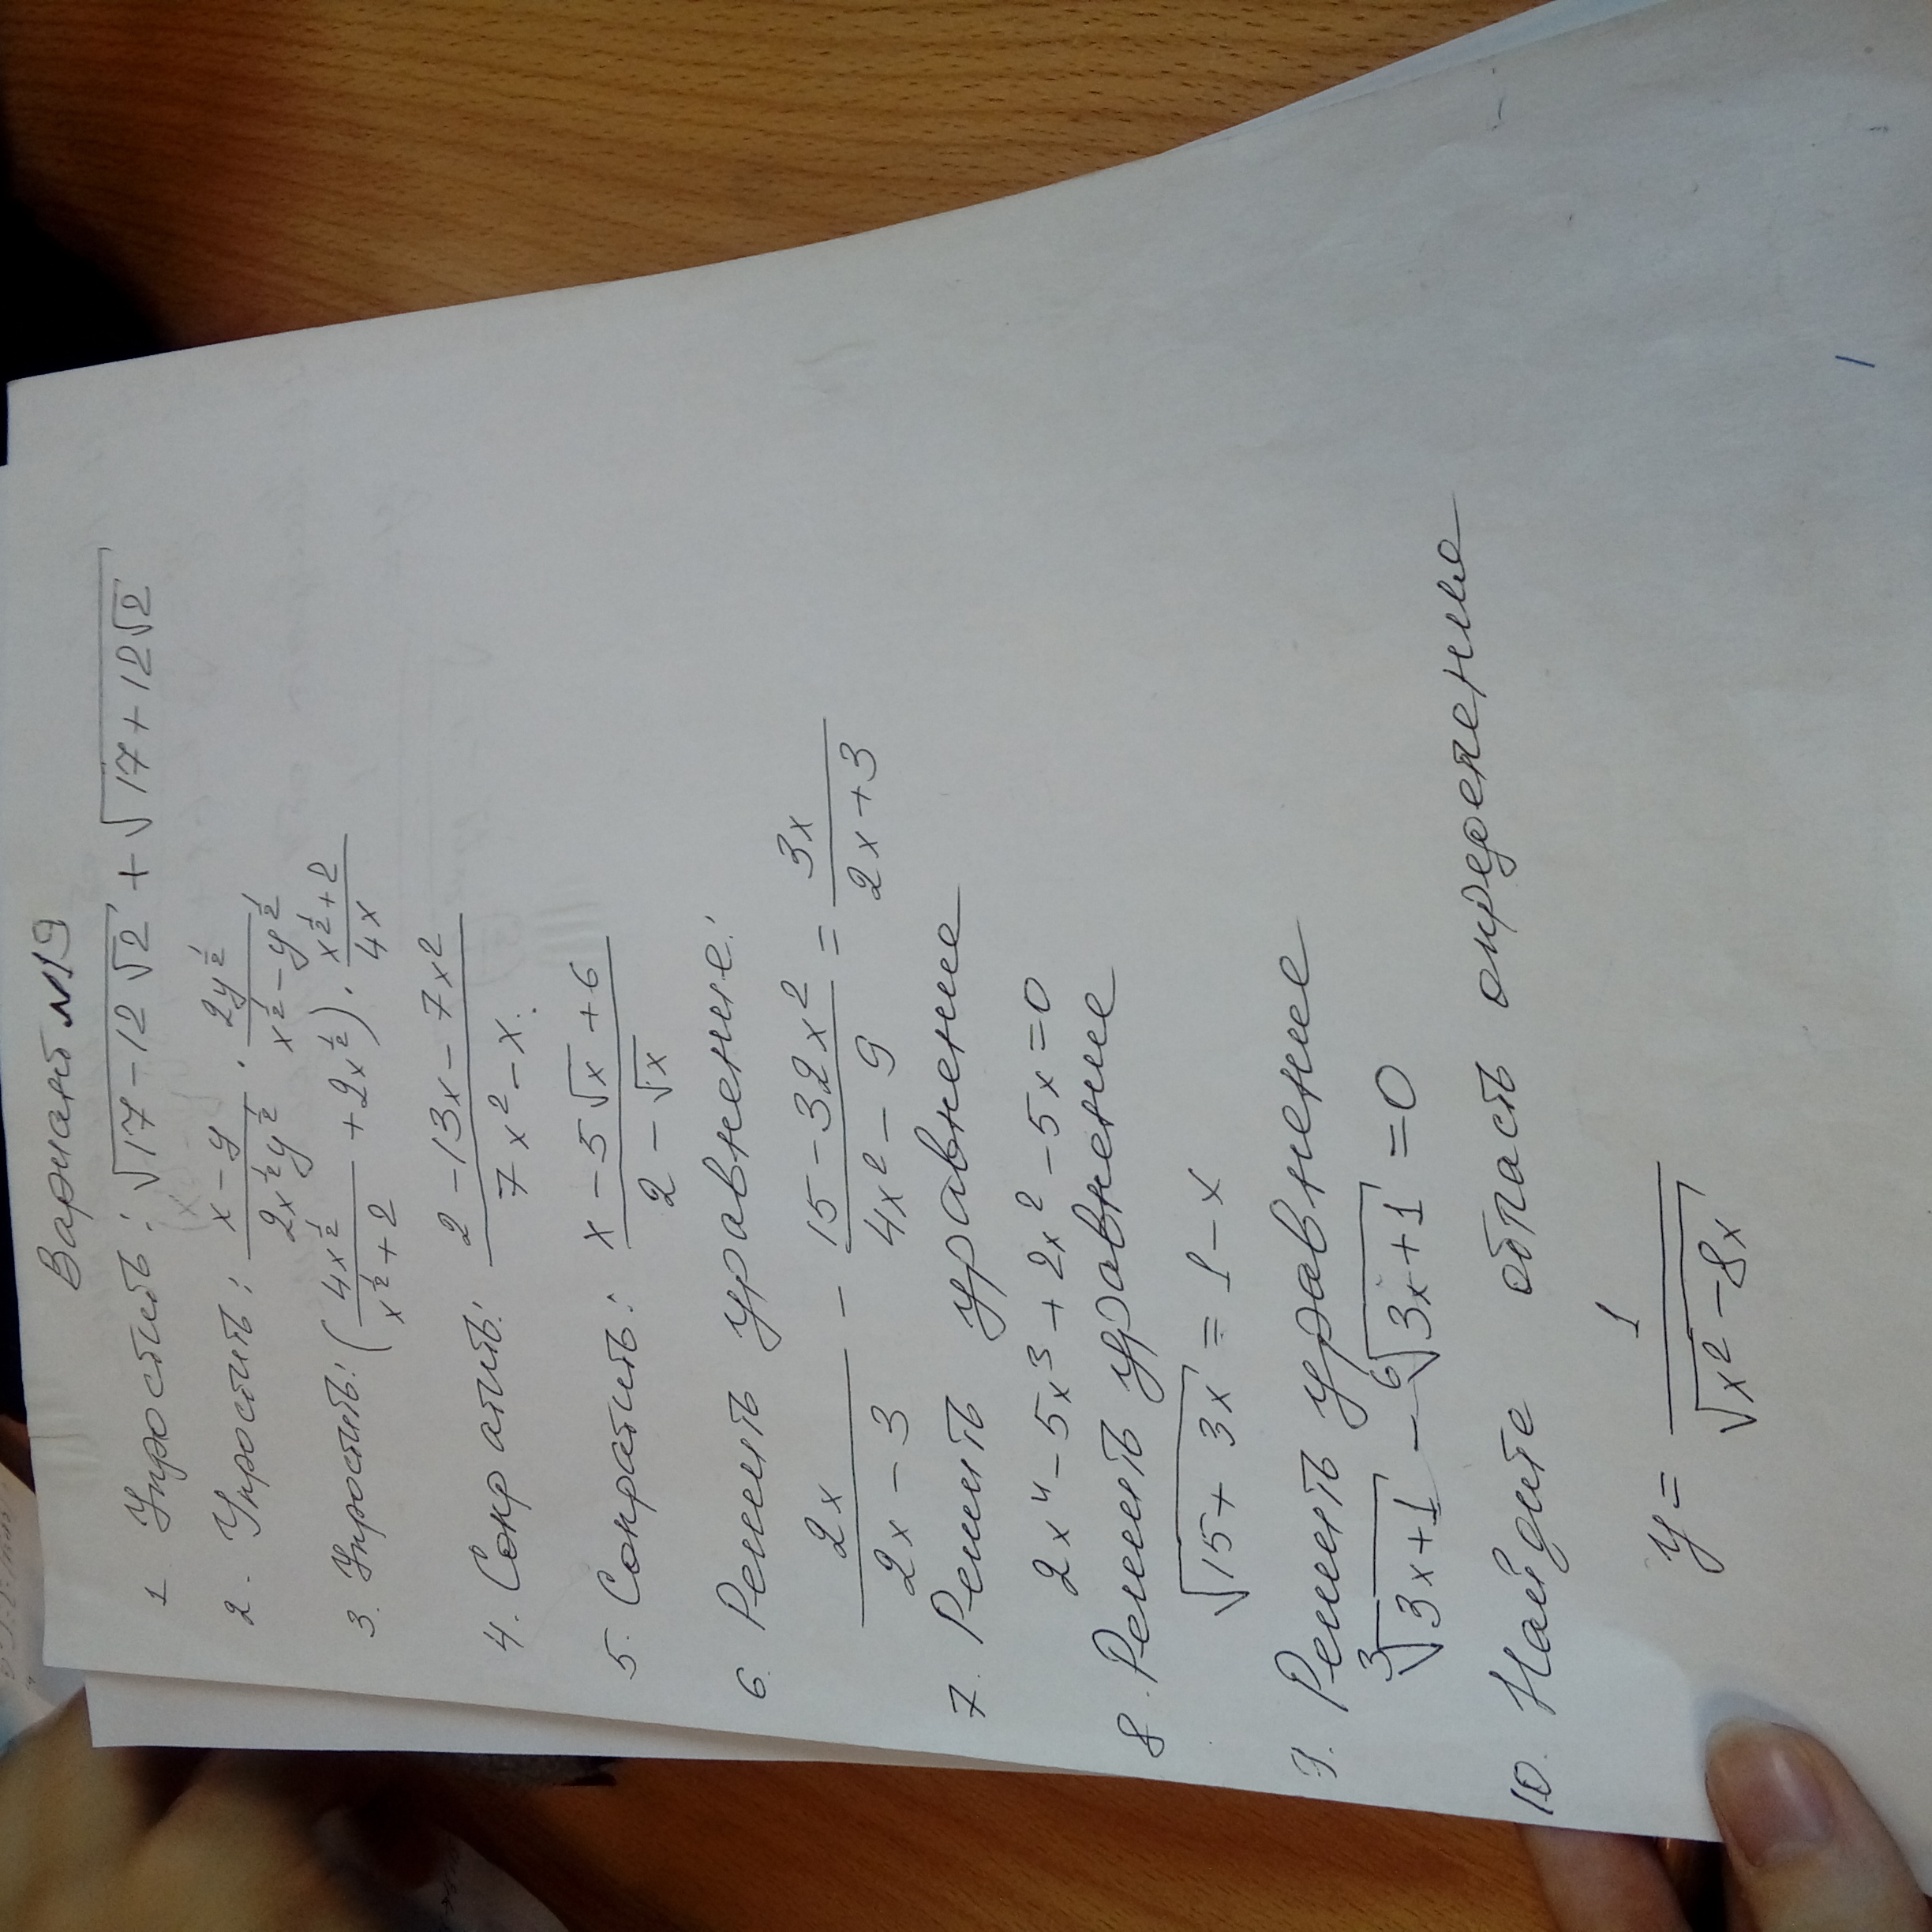 Вариант №19
1 Упростить: √(17-12√2) + √(17+12√2)
2. Упростить: (x-y)/(2x^(1/2)y^(1/2)) · (2y^(1/2))/(x^(1/2)-y^(1/2))
3. Упростить: ((4x^(1/2))/(x^(1/2)+2) + 2x^(1/2)) · (x^(1/2)+2)/(4x)
4. Сократить: (2-13x-7x²)/(7x²-x).
5. Сократить: (x-5√x+6)/(2-√x)
6. Решить уравнение:
2x/(2x-3) - (15-32x²)/(4x²-9) = 3x/(2x+3)
7. Решить уравнение
2x⁴-5x³+2x²-5x=0
8. Решить уравнение
√(15+3x) = 1-x
9. Решить уравнение
∛(3x+1) - ⁶√(3x+1) =0
10. Найдите область определению
y = 1/√(x²-8x)